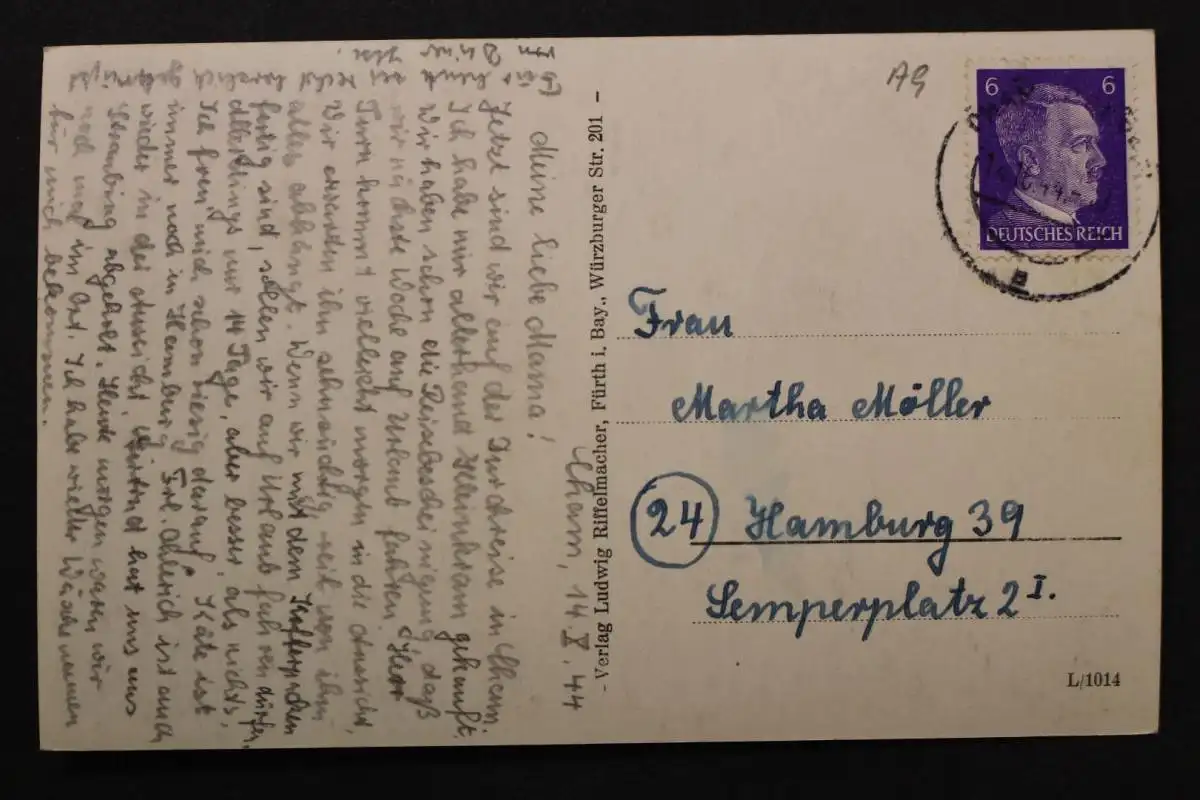 Cham, 14.X.44
Meine liebe Mama!
Jetzt sind wir auf der Durchreise in Cham.
Ich habe mir allerhand Kleinkram gekauft.
Wir haben schon die Reisebescheinigung daß
wir nächste Woche auf Urlaub fahren. Herr
Turn kommt vielleicht morgen in die
Wir erwarten ihn sehnsüchtig, weil von ihm
alles abhängt. Wenn wir mit dem
fertig sind, sollen wir auf Urlaub fahren dürfen,
allerdings nur 14 Tage, aber besser als nichts,
Ich freu mich schon riesig darauf. Käte ist
immer noch in Hamburg. Frl. ist auch
wieder in der hat uns aus
Straubing abgeholt. Heute morgen waren wir
noch mal im Ort. Ich habe wieder Wäsche nennen
für mich bekommen.
- Verlag Ludwig Riffelmacher, Fürth i. Bay., Würzburger Str. 201 -
A9
6 6
DEUTSCHES REICH
Frau
Martha Möller
24 Hamburg 39
Semperplatz 2 I.
L/1014